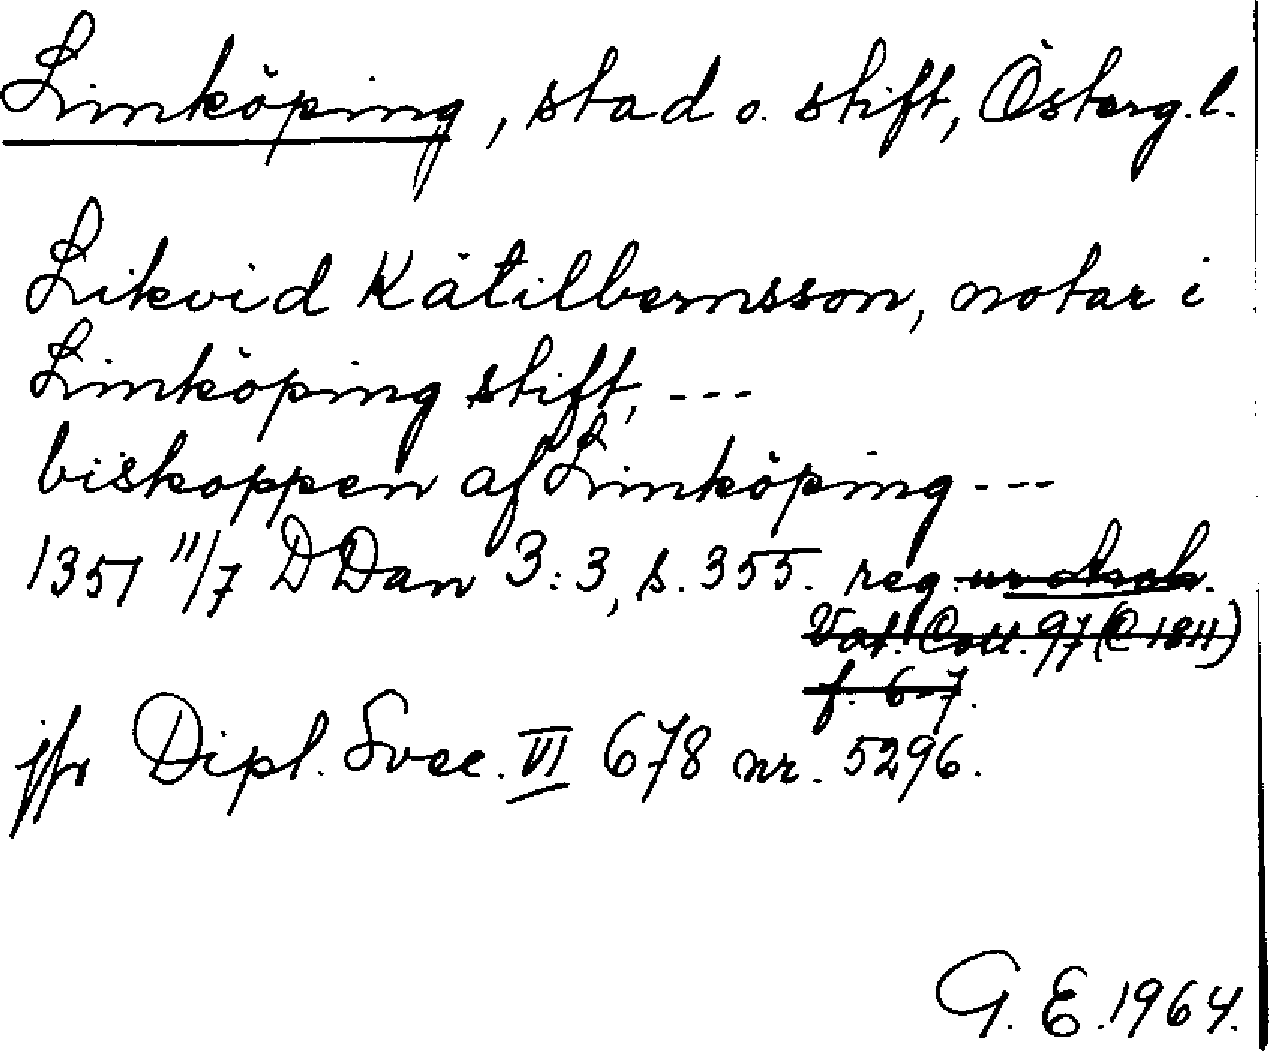 Linköping, stad o. stift, Österg.l.
Likvid Kätilbernsson, notar i
Linköping stift, ---
biskoppen af Linköping ---
1351 11/7 DDan 3:3, s. 355. reg. ur Arch.
Vat. Coll. 97 (C 1811)
f. 6-7.
jfr Dipl. Svec. VI 678 nr. 5296.
G. E. 1964.